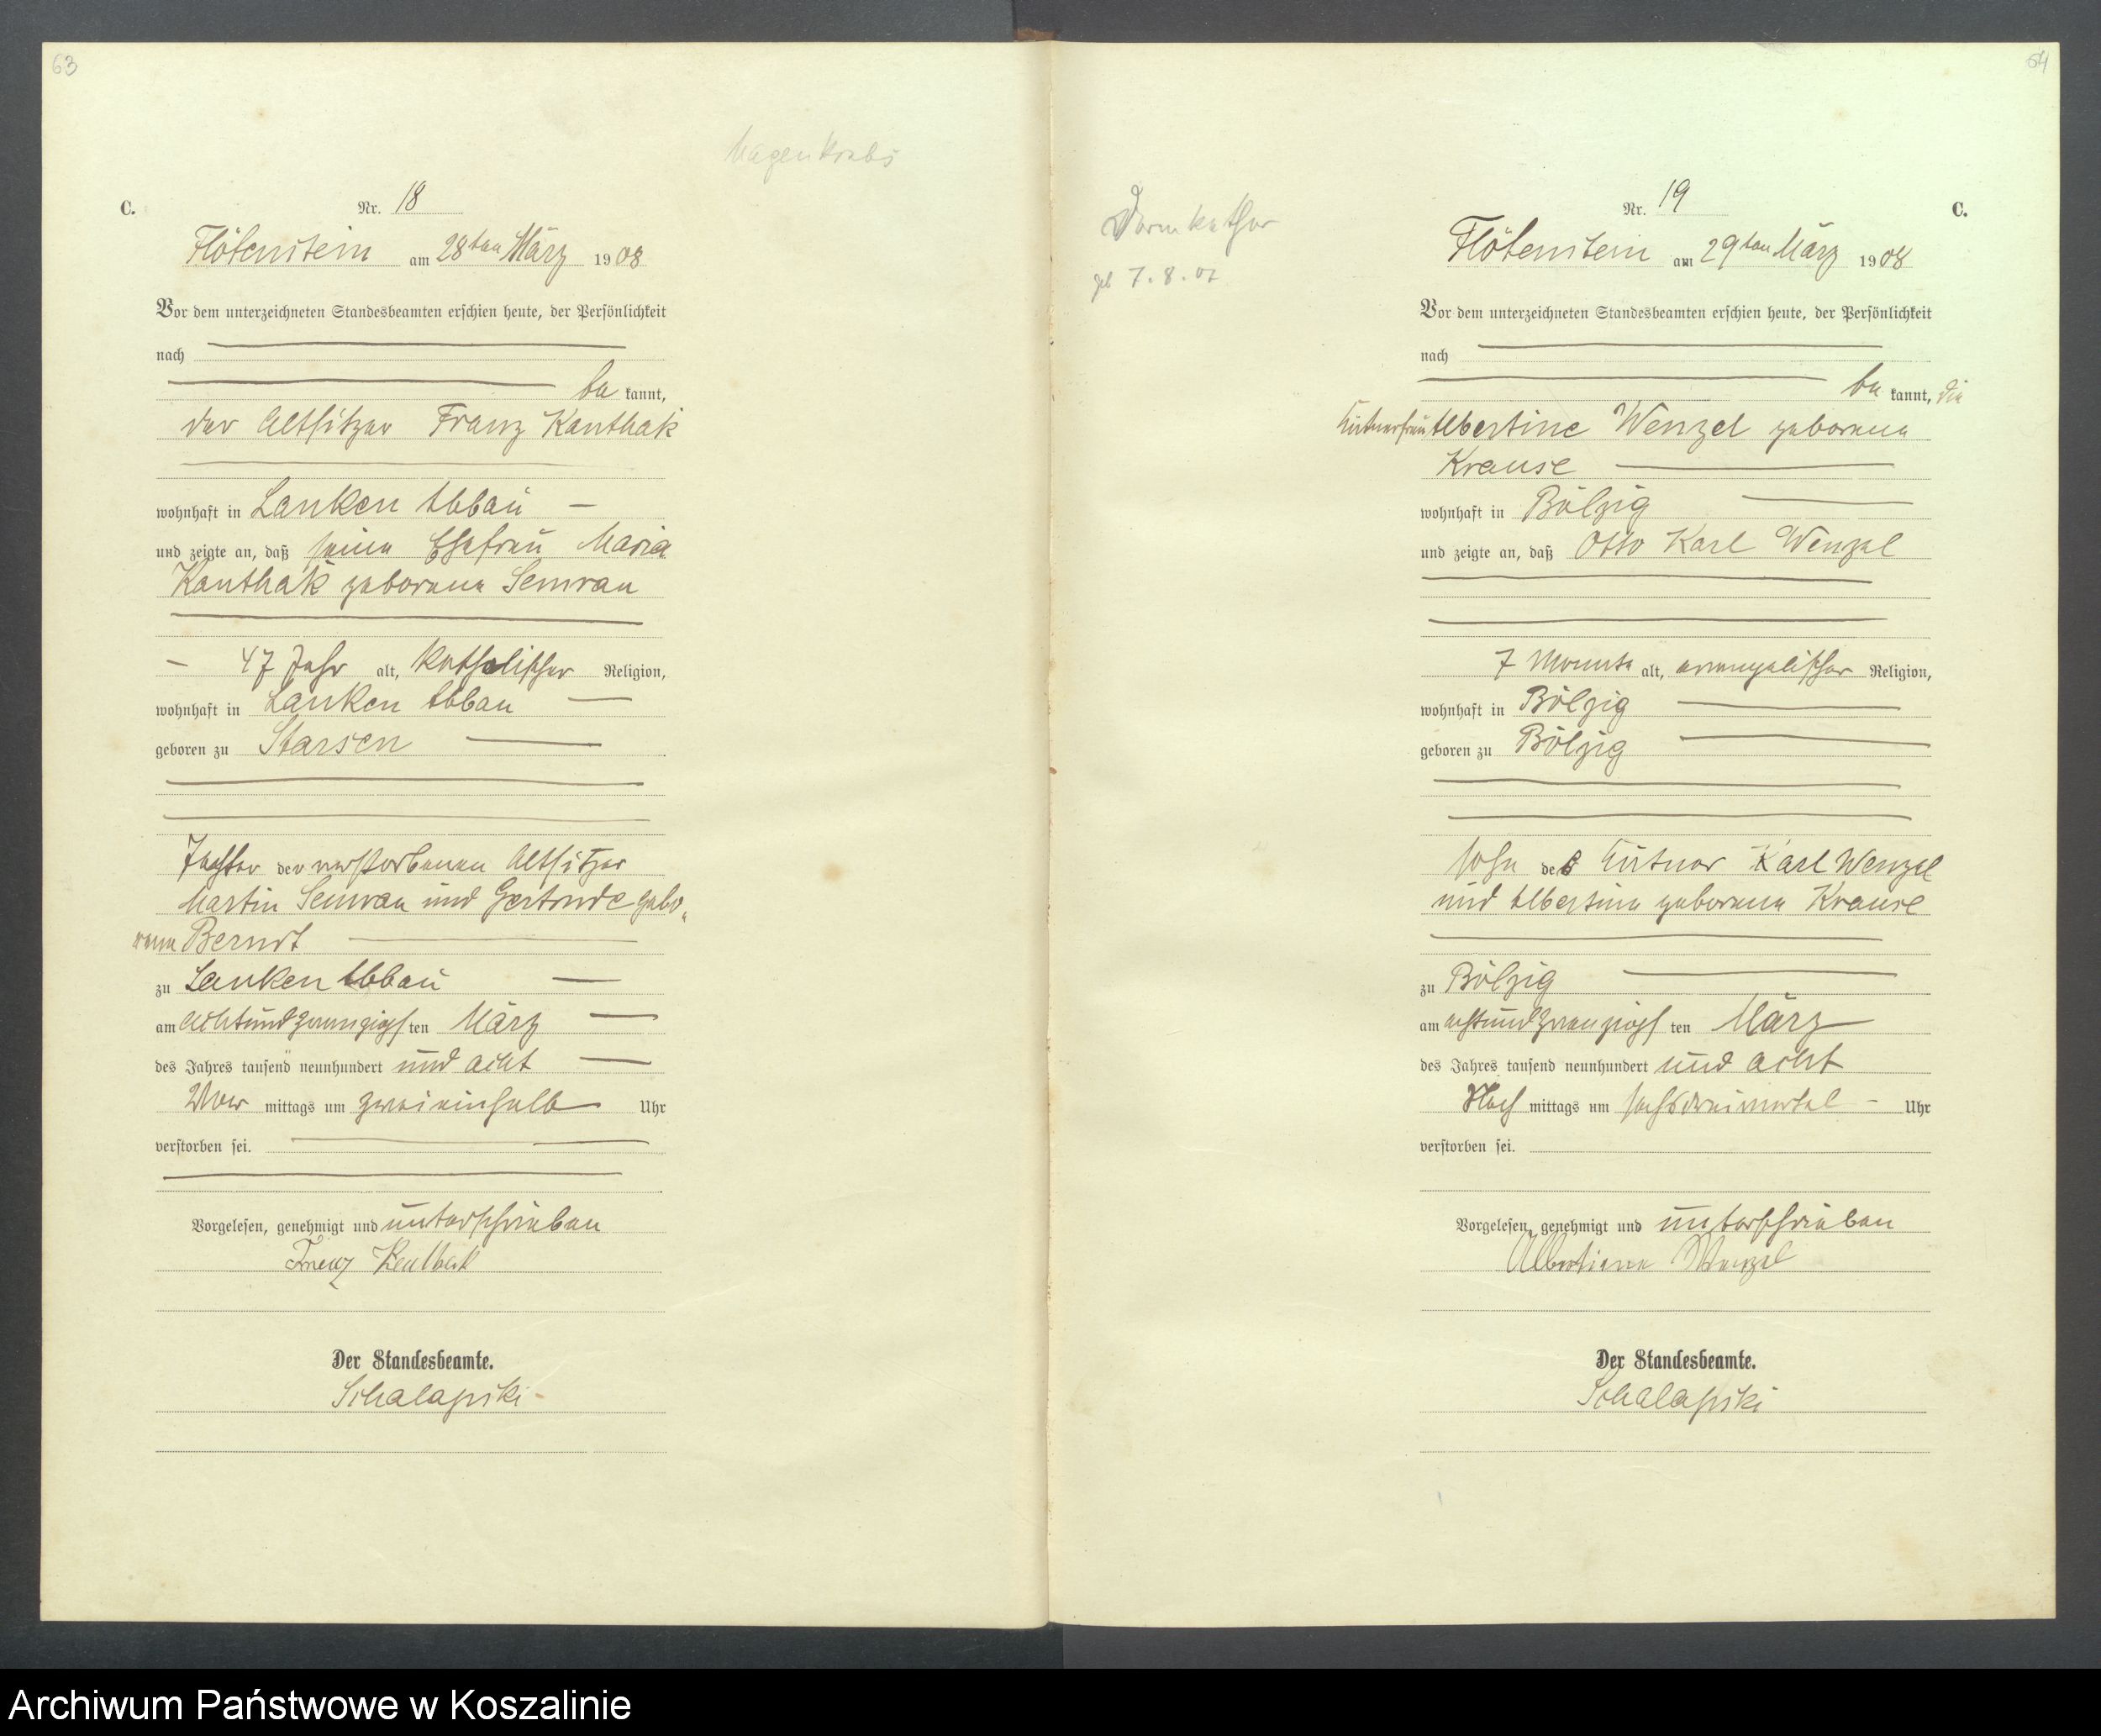 63
Magenkrebs
C.
Nr. 18
Flötenstein am 28ten März 1908
Vor dem unterzeichneten Standesbeamten erschien heute, der Persönlichkeit
nach
be kannt,
der Altsitzer Franz Kanthak
wohnhaft in Lanken Abbau
und zeigte an, daß seine Ehefrau Maria
Kanthak geborene Semrau
47 Jahr alt, katholischer Religion,
wohnhaft in Lanken Abbau
geboren zu Starsen
Tochter der verstorbenen Altsitzer
Martin Semrau und Gertrude gebo„
rene Berndt
zu Lanken Abbau
am achtundzwanzigsten März
des Jahres tausend neunhundert und acht
Vor mittags um zweieinhalb Uhr
verstorben sei.
Vorgelesen, genehmigt und unterschrieben
Franz Kanthak
Der Standesbeamte.
Schalapski
54
Darmkathar
geb 7.8.07
C.
Nr. 19
Flötenstein am 29ten März 1908
Vor dem unterzeichneten Standesbeamten erschien heute, der Persönlichkeit
nach
be kannt, die
Albertine Wenzel geborene
Krause
wohnhaft in Bölzig
und zeigte an, daß Otto Karl Wenzel
7 Monate alt, evangelischer Religion,
wohnhaft in Bölzig
geboren zu Bölzig
Sohn des Karl Wenzel
und Albertine geborene Krause
zu Bölzig
am achtundzwanzigsten März
des Jahres tausend neunhundert und acht
Nach mittags um sechsdreiviertel Uhr
verstorben sei.
Vorgelesen, genehmigt und unterschrieben
Albertine Wenzel
Der Standesbeamte.
Schalapski
Archiwum Państwowe w Koszalinie